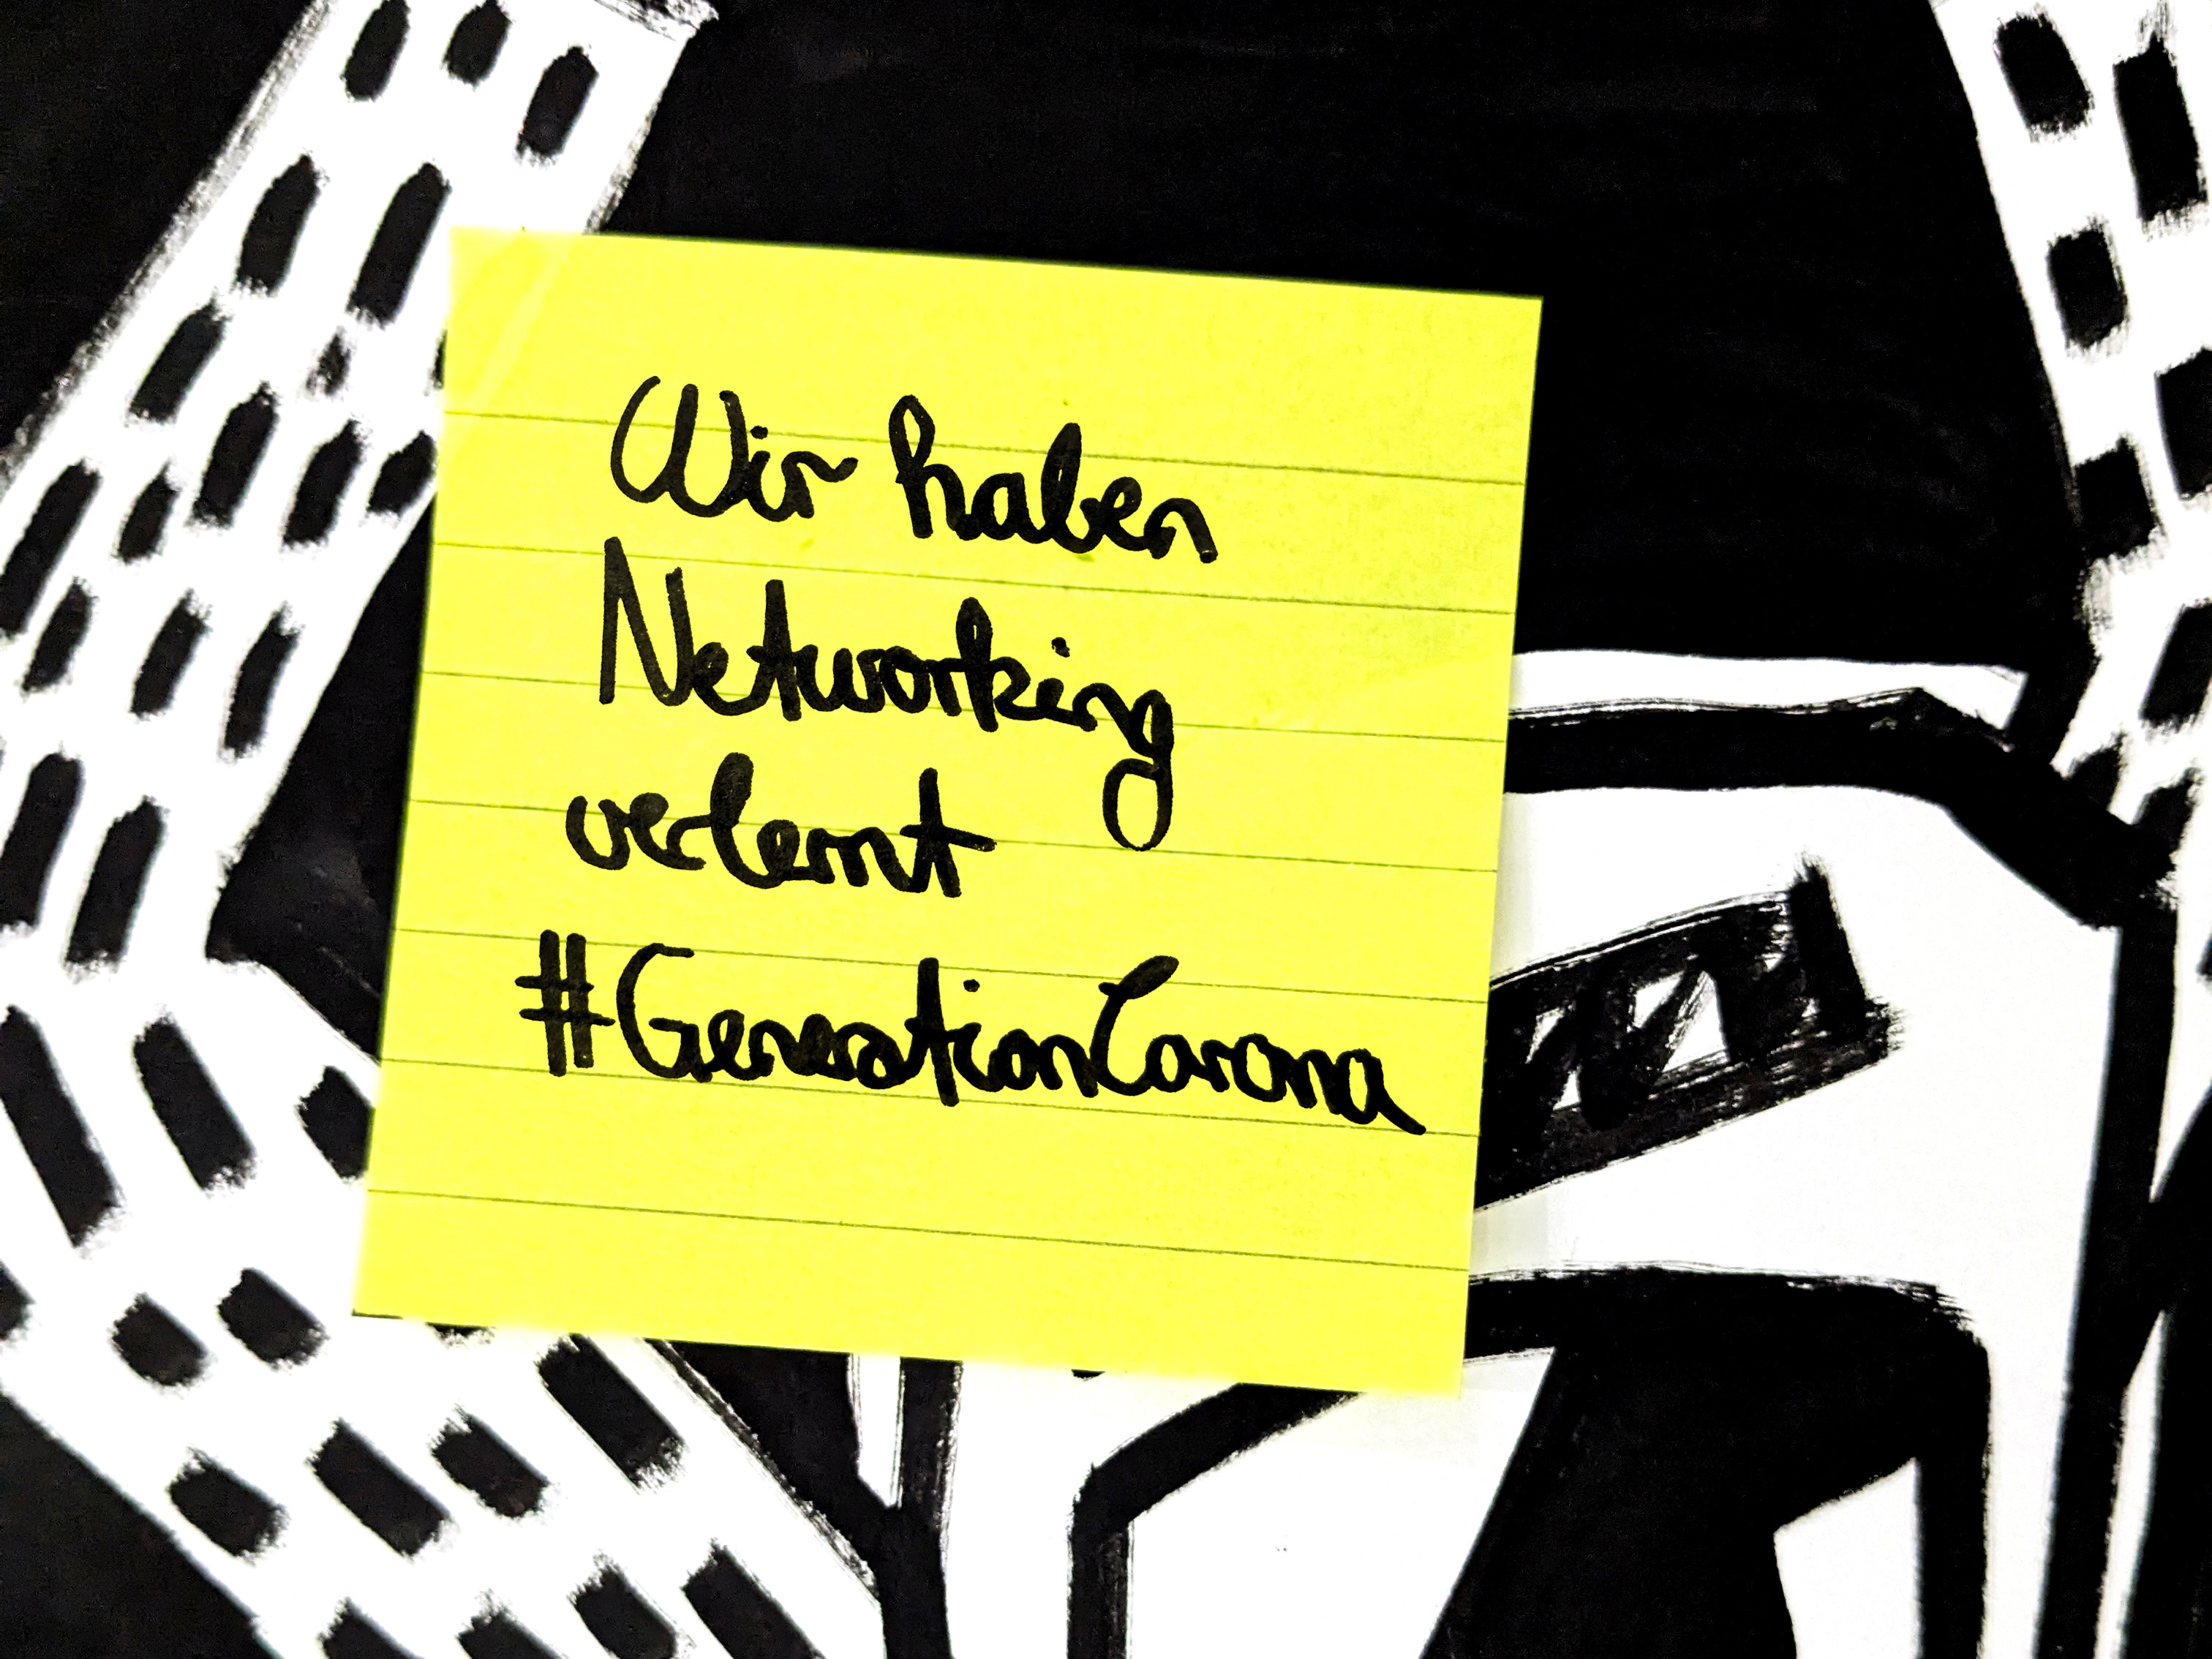 Wir haben
Networking
verlernt
#GenerationCorona